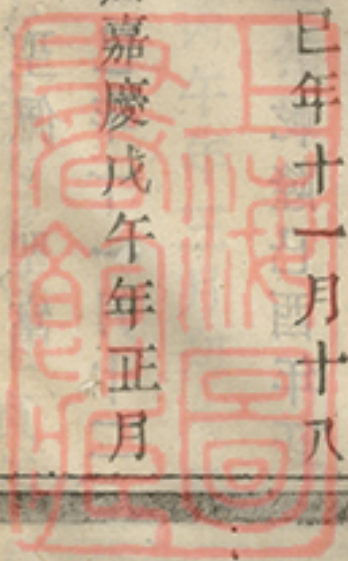 巳年十一月十八
嘉慶戊午年正月
上海圖書館藏